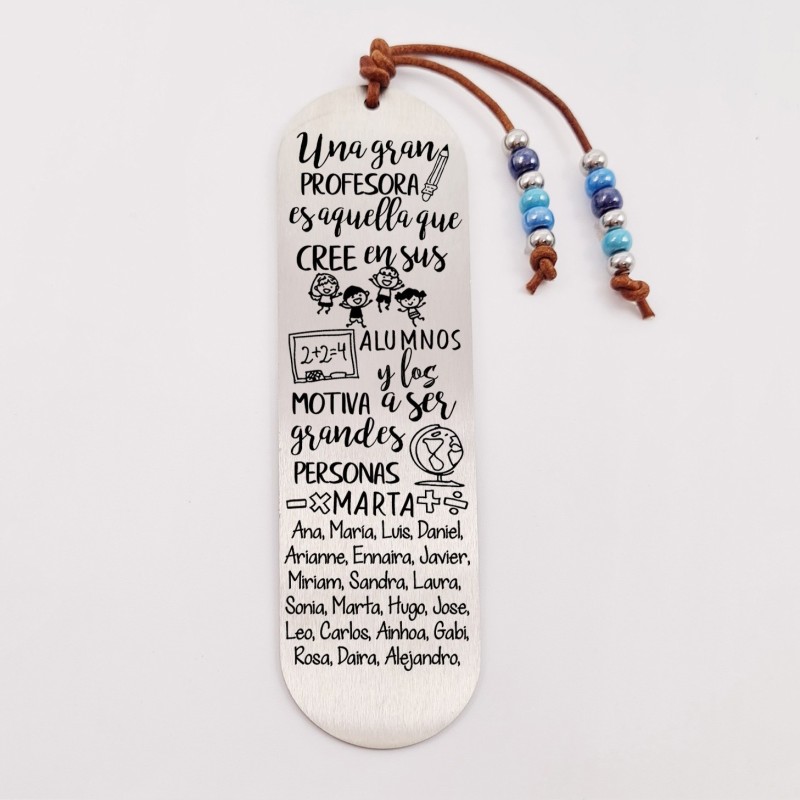 Una gran
PROFESORA
es aquella que
CREE en sus
ALUMNOS
2+2=4
y los
MOTIVA a ser
grandes
PERSONAS
-×MARTA+÷
Ana, María, Luis, Daniel,
Arianne, Ennaira, Javier,
Miriam, Sandra, Laura,
Sonia, Marta, Hugo, Jose,
Leo, Carlos, Ainhoa, Gabi,
Rosa, Daira, Alejandro,